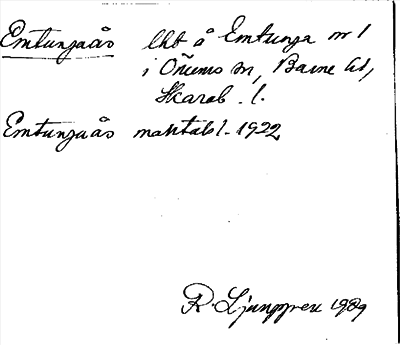 Emtungaås lht å Emtunga nr 1
i Önums sn, Barne hd,
Skarab. l.
Emtungaås mantalsl. 1922
R. Ljunggren 1989